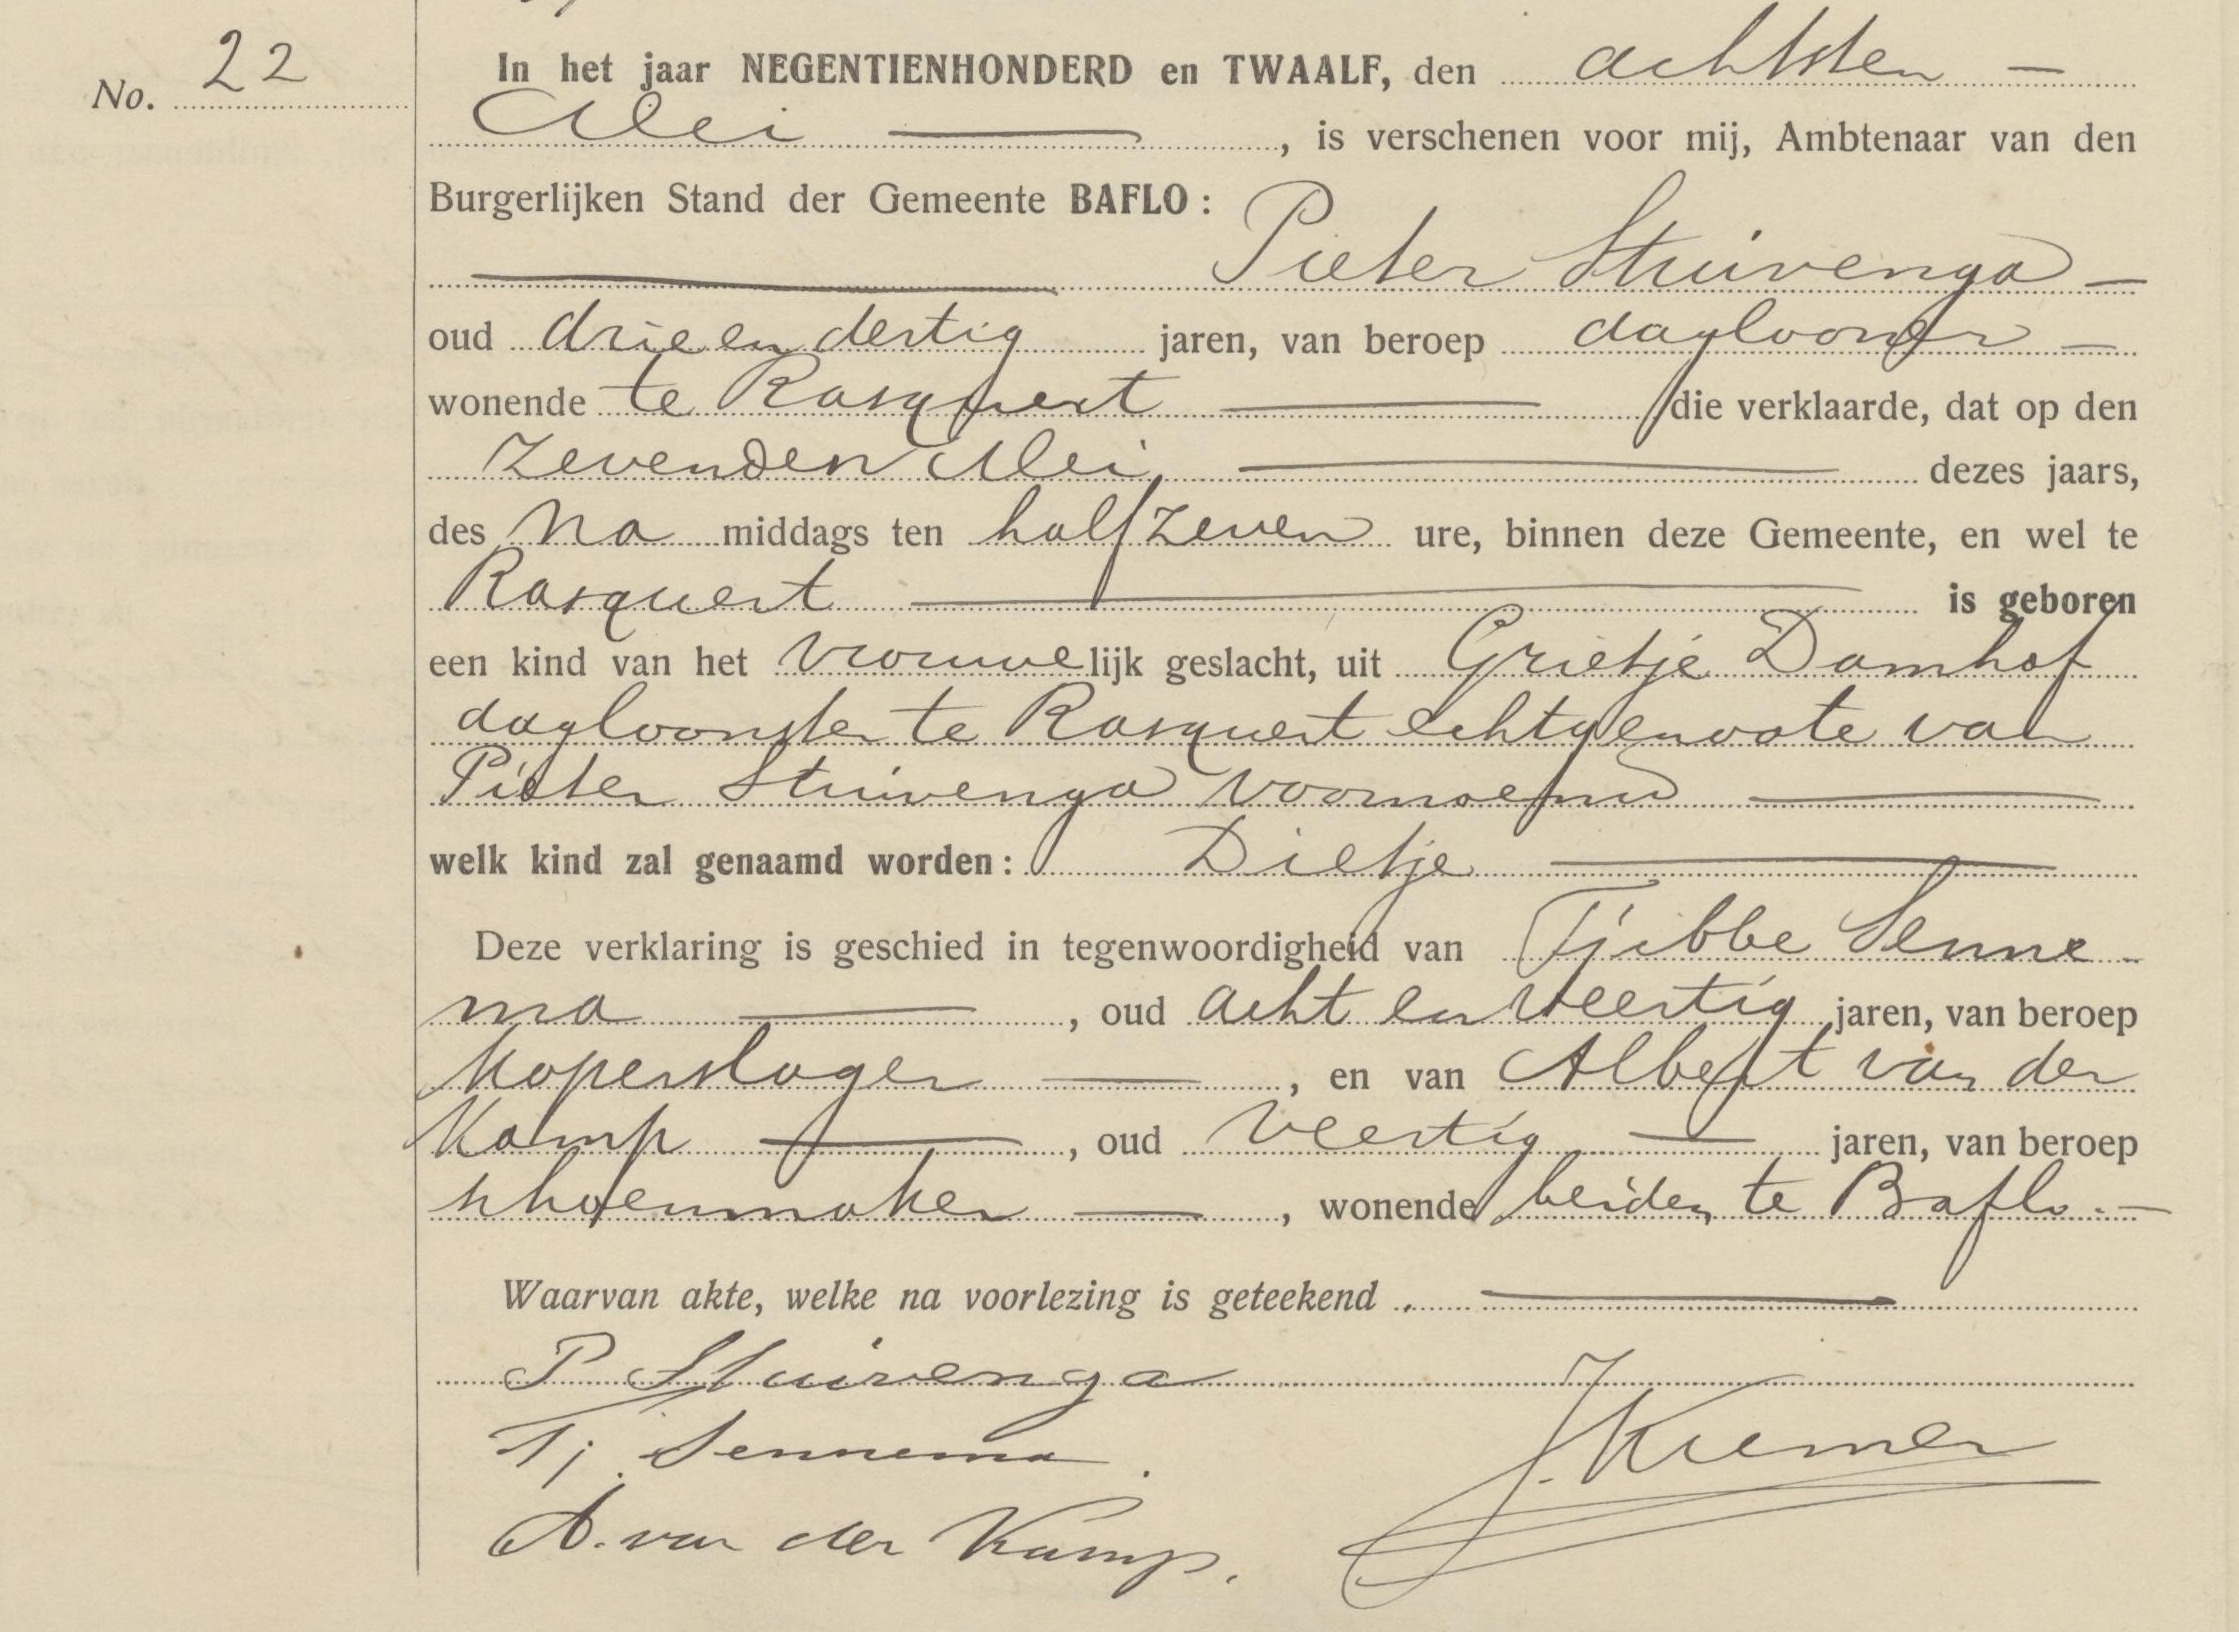 No. 22
In het jaar NEGENTIENHONDERD en TWAALF, den achtsten —
Mei —, is verschenen voor mij, Ambtenaar van den
Burgerlijken Stand der Gemeente BAFLO:
— Pieter Stuivenga —
oud drie en dertig jaren, van beroep daglooner —
wonende te Rasquert — die verklaarde, dat op den
zevenden Mei, — dezes jaars,
des na middags ten half zeven ure, binnen deze Gemeente, en wel te
Rasquert — is geboren
een kind van het vrouwelijk geslacht, uit Grietje Damhof
dagloonster te Rasquert echtgenoote van
Pieter Stuivenga voornoemd —
welk kind zal genaamd worden: Dietje —
Deze verklaring is geschied in tegenwoordigheid van Tjibbe Senne-
ma —, oud acht en veertig jaren, van beroep
koperslager —, en van Albert van der
Kamp —, oud veertig — jaren, van beroep
schoenmaker —, wonende beiden te Baflo. —
Waarvan akte, welke na voorlezing is geteekend. —
P Stuivenga
Tj. Sennema.
J. Kremer
A. van der Kamp.